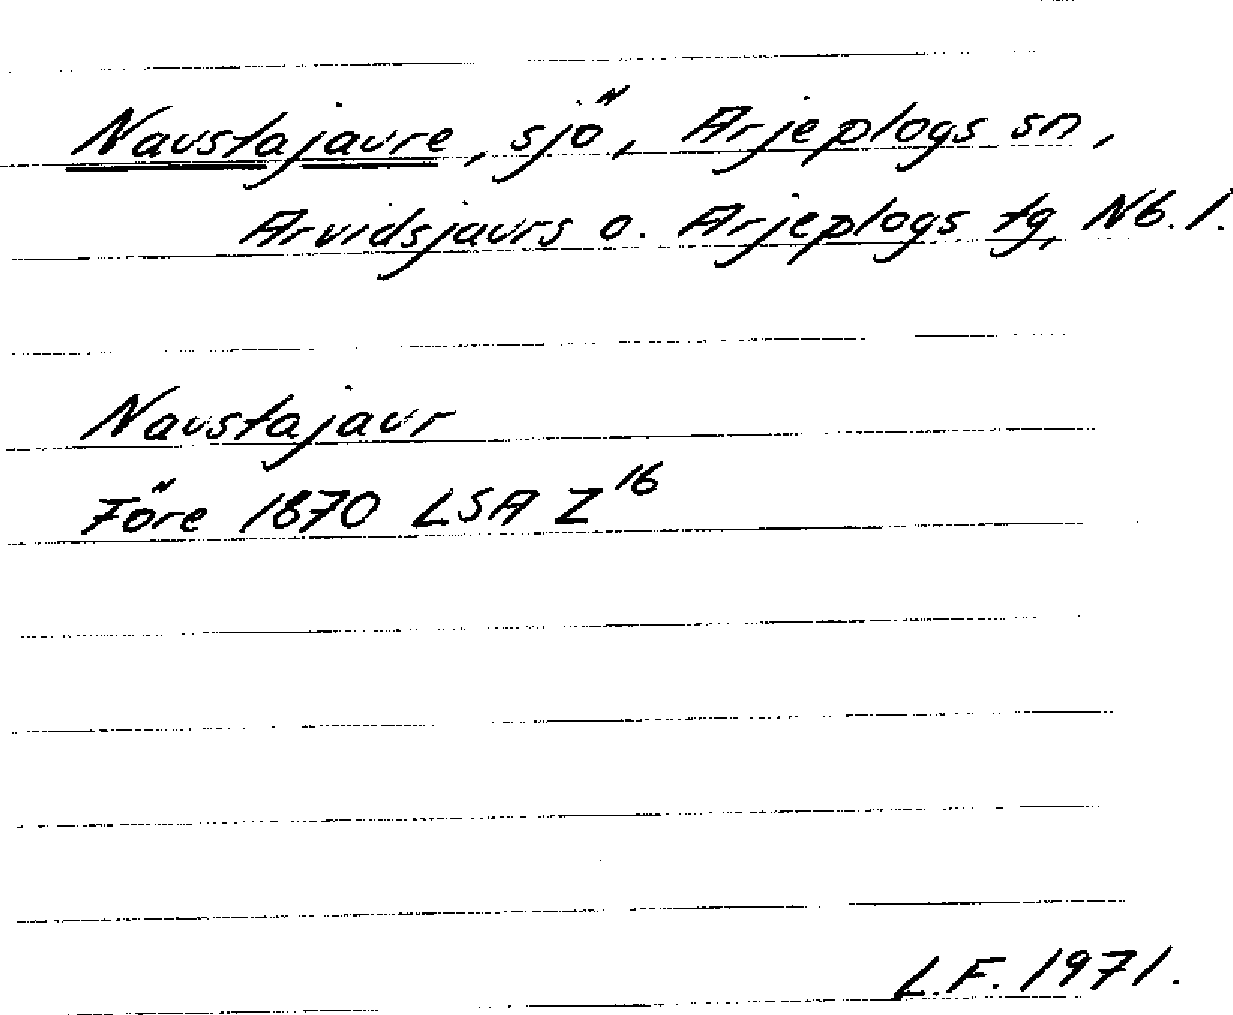 Naustajaure, sjö, Arjeplogs sn,
Arvidsjaurs o. Arjeplogs tg, Nb. l.
Naustajaur
Före 1870 LSA Z16
L.F. 1971.